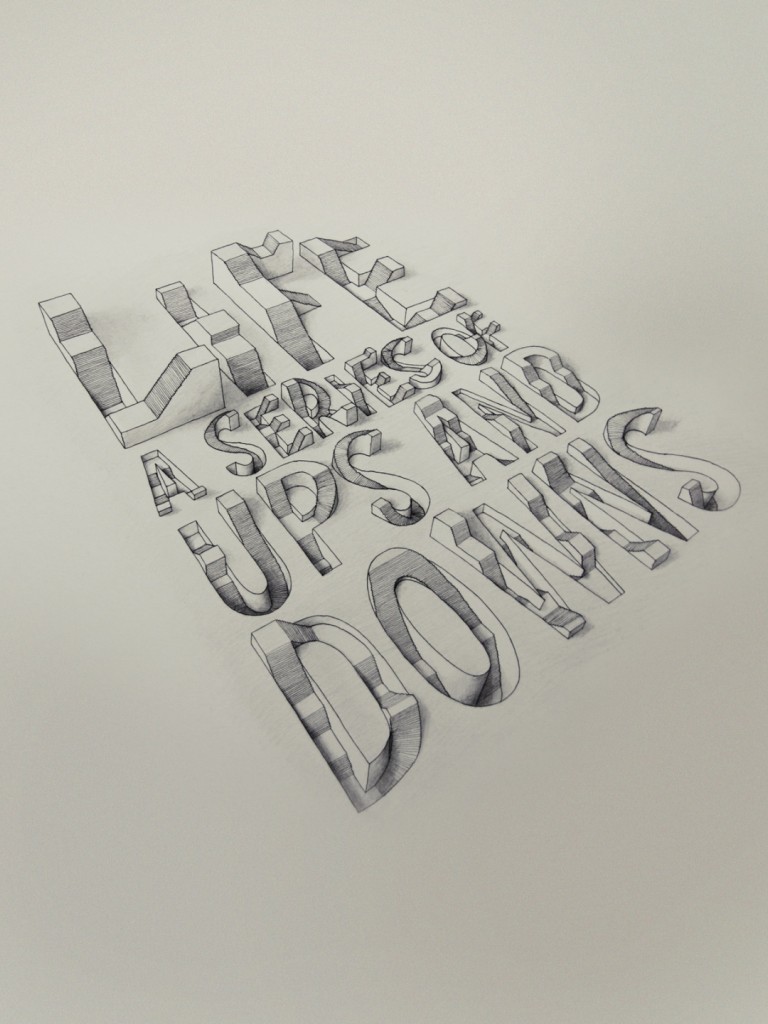 LIFE
A SERIES OF
UPS AND
DOWNS